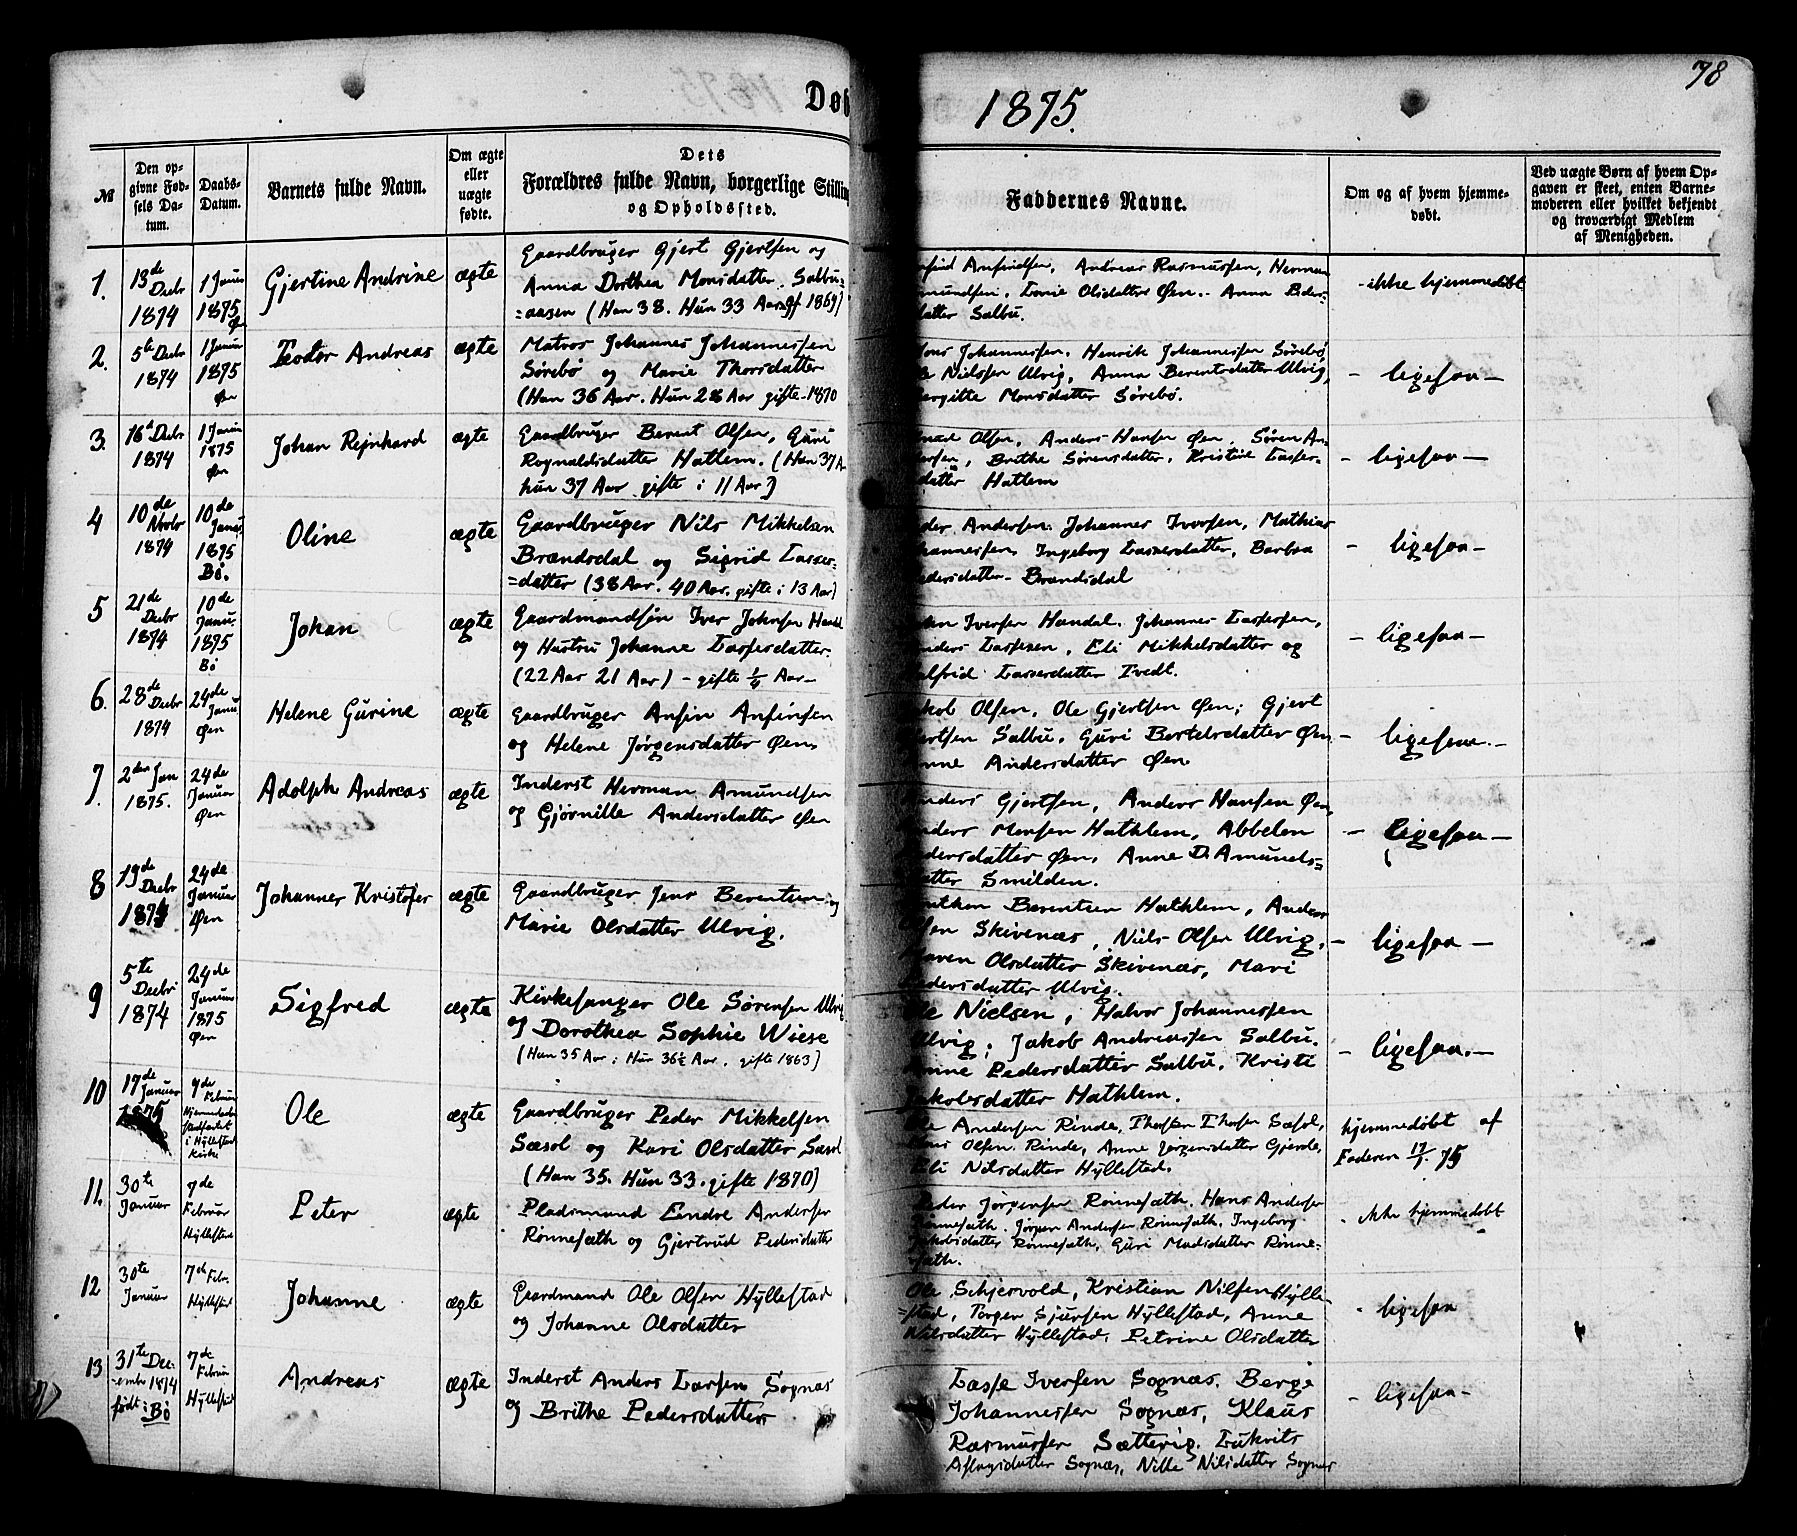 78
Døb
1875.
№
Den op-
givne Fød-
sels Da-
tum.
Daabs-
Datum.
Barnets fulde Navn.
Om ægte
eller
uægte
fødte.
Dets
Forældres fulde Navn, borgerlige Stillin
og Opholdssted.
Faddernes Navne.
Om og af hvem hjemme-
døbt.
Ved uægte Børn af hvem Op-
gaven er skeet, enten Barne-
moderen eller hvilket bekjendt
og troværdigt Medlem
af Menigheden.
1.
13de
Decbr
1874
1 Januar
1875
Øn
Gjertine Andrine
ægte
Gaardbruger Gjert Gjertsen og
Anna Dorthea Monsdatter Salbu-
=aasen (Han 38. Hun 33 Aar gf 1869)
Anfindsen, Andreas Rasmussen, Herman
mundsen, Lovie Olsdatter Øen. Anna Peder-
datter Salbu.
- ikke hjemmedøbt
2.
5te Decbr
1874
1 Januar
1875
Øn
Teodor Andreas
ægte
Matros Johannes Johannessen
Sørebø og Marie Thorsdatter
(Han 36 Aar. Hun 28 Aar gifte 1870
Johannessen. Henrik Johannessen Sørebø,
Nielssen Ulvig, Anna Berentsdatter Ulvig,
ergitte Monsdatter Sørebø.
- ligesaa -
3.
16de Decbr
1874
1 Januar
1875
Øen
Johan Rejnhard
ægte
Gaardbruger Berent Olsen, Guri
Rognaldsdatter Hatlem. (Han 37 A
hun 37 Aar gifte i 11 Aar)
Olsen, Anders Hansen Øen, Søren An-
ersen, Brithe Sørensdatter, Kristine Lasses-
datter Hatlem
- ligesaa -
4
10de
Novbr
1874
10de
Janu.
1875
Bø.
Oline
ægte
Gaardbruger Nils Mikkelsen
Brændsdal og Sigrid Lasses-
=datter (38 Aar. 40 Aar, gifte i 13 Aar)
eder Andersen. Johannes Iversen, Mathias
hannessen, Ingeborg Lassesdatter, Barbra
edersdatter Brandsdal
- ligesaa -
5
21de
Decbr
1874
10de
Janu.
1875
Bø
Johan
ægte
Gaardmandsøn Iver Johnsen Handal
og Hustru Johanne Lassesdatter.
(22 Aar 21 Aar) - gifte 1/4 Aar-
Iversen Handal. Johannes Lassesen,
nders Lassesen, Eli Mikkelsdatter og
alfrid Lassesdatter Tvedt.
- ligesaa -
6.
28de
Decbr
1874
24de
Janu
Øen
Helene Gurine
ægte
Gaardbruger Anfin Anfinsen
og Helene Jørgensdatter Øen
kob Olsen, Ole Gjertsen Øen; Gjert
jertsen Salbu, Guri Bertelsdatter Øen
nne Andersdatter Øen
- ligesaa. -
7.
2den Jan
1875.
24de
Januar
Øen
Adolph Andreas
ægte
Inderst Herman Amundsen
og Gjørnille Andersdatter Øen
nders Gjertsen, Anders Hansen Øen,
nders Monsen Hathlem, Abbelen
ndersdatter Øen, Anne D. Amunds=
atter Smilden.
- ligesaa -
8
19de
Decbr
1874
24de
Januar
Øen
Johannes Kristofer
ægte
Gaardbruger Jens Berentsen og
Marie Olsdatter Ulvig.
nthon Berentsen Hathlem, Anders
lsen Skivenæs, Niels Olsen Ulvig,
aren Olsdatter Skivenæs, Mari
edersdatter Ulvig.
- ligesaa -
9
5te
Decbr
1874
24de
Januar
1875
Øen
Sigfred
ægte
Kirkesanger Ole Sørensen Ulvig
og Dorothea Sophie Wiese
(Han 35 Aar; Hun 36½ Aar. gifte 1863)
le Nielsen, Halvor Johannessen
Ulvig; Jakob Andreassen Salbu.
nne Pedersdatter Salbu, Kristi
Jakobsdatter Hathlem.
- ligesaa. -
10
17de
Januar
1875
7de
Februar
Hjemmedøbt
stadfæstet
i Hyllestad
Kirke
Ole
ægte
Gaardbruger Peder Mikkelsen
Sæsol og Kari Olsdatter Sæsol
(Han 35. Hun 33. gifte 1870)
Andersen Rinde, Thorsten Thorsen Sæsol,
Olsen Rinde, Anne Jørgensdatter Gjerde,
Eli Nilsdatter Hyllestad.
hjemmedøbt af
Faderen 17/1. 75
11.
30te
Januar
7de
Februar
Hyllestad
Peter
ægte
Pladsmand Endre Andersen
Rønnesæth og Gjertrud Pedersdatter
Peder Jørgensen Rønnesæth. Hans Andersen
Rønnesæth. Jørgen Andersen Rønnesæth. Ingeborg
Jakobsdatter Rønnesæth, Guri Madsdatter Rønne-
sæth.
- ikke hjemmedøbt
12
30te
Januar
7de Febr.
Hyllestad
Johanne
ægte
Gaardmand Ole Olsen Hyllestad
og Johanne Olsdatter
Ole Schjervold, Kristian Nilsen Hylle-
=stad, Torger Sjursen Hyllestad, Anne
Nilsdatter Hyllestad, Petrine Olsdatter
- ligesaa
13
31te Dec-
embr 1874
født i
Bø
7de
Februar
Hyllestad
Andreas
ægte
Inderst Anders Larsen Sognæs
og Brithe Pedersdatter
Lasse Iversen Sognæs. Berge
Johannessen Sognæs, Klaus
Rasmussen Sættevig. Lukrits
Aslagsdatter Sognæs, Nille Nilsdatter Sognæs
- ligesaa -